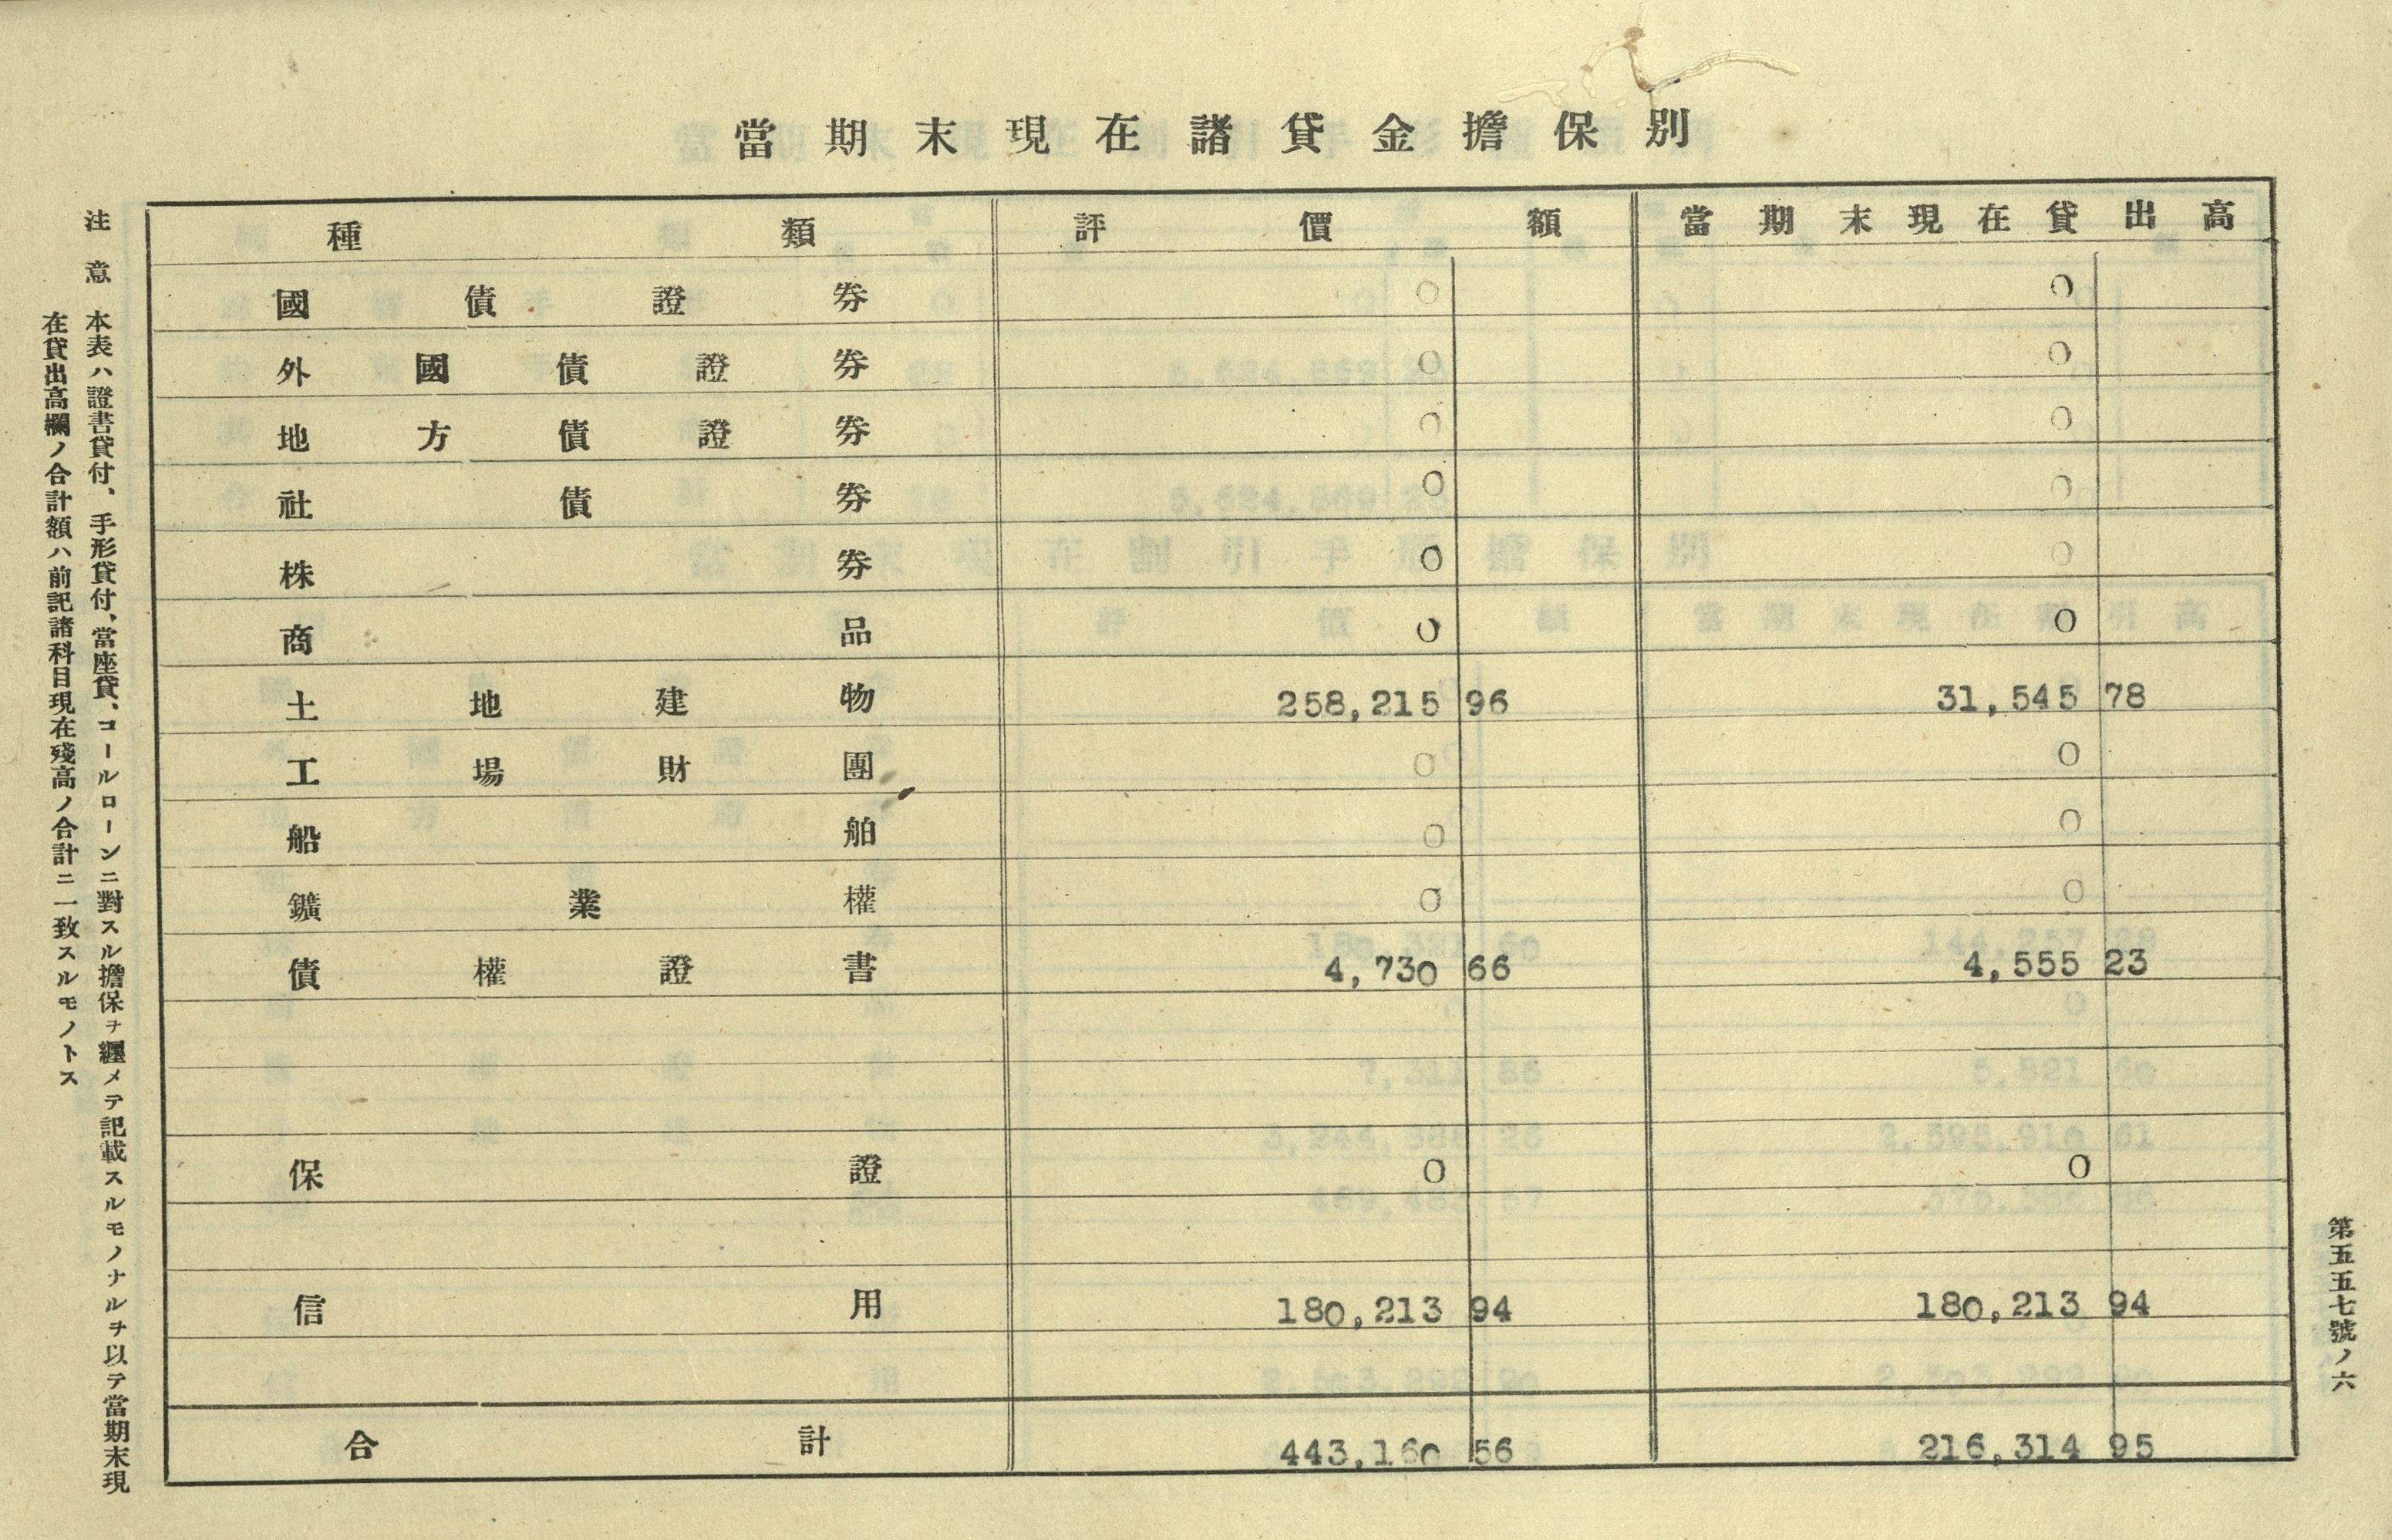 當期末現在諸貸金擔保別
種類 評價額 當期末現在貸出高
國債證券 0 0
外國債證券 0 0
地方債證券 0 0
社債券 0 0
株券 0 0
商品 0 0
土地建物 258,215 96 31,545 78
工場財團 0 0
船舶 0 0
鑛業權 0 0
債權證書 4,730 66 4,555 23
保證 0 0
信用 180,213 94 180,213 94
合計 443,160 56 216,314 95
注意 本表ハ證書貸付、手形貸付、當座貸、コールローンニ對スル擔保ヲ纒メテ記載スルモノナルヲ以テ當期末現
在貸出高欄ノ合計額ハ前記諸科目現在殘高ノ合計ニ一致スルモノトス
第五五七號ノ六